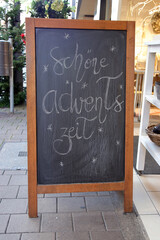 schöne
advents
zeit